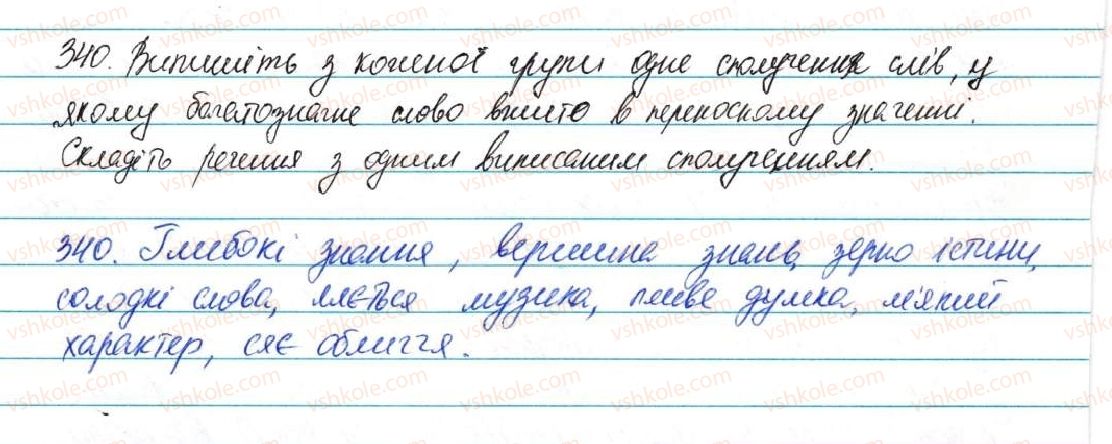 340. Випишіть з кожної групи одне сполучення слів, у
якому багатозначне слово вжито в переносному значенні.
Складіть речення з одним виписаним сполученням.
340. Глибокі знання, вершина знань, зерно істини,
солодкі слова, ллється музика, пливе думка, м'який
характер, сяє обличчя.